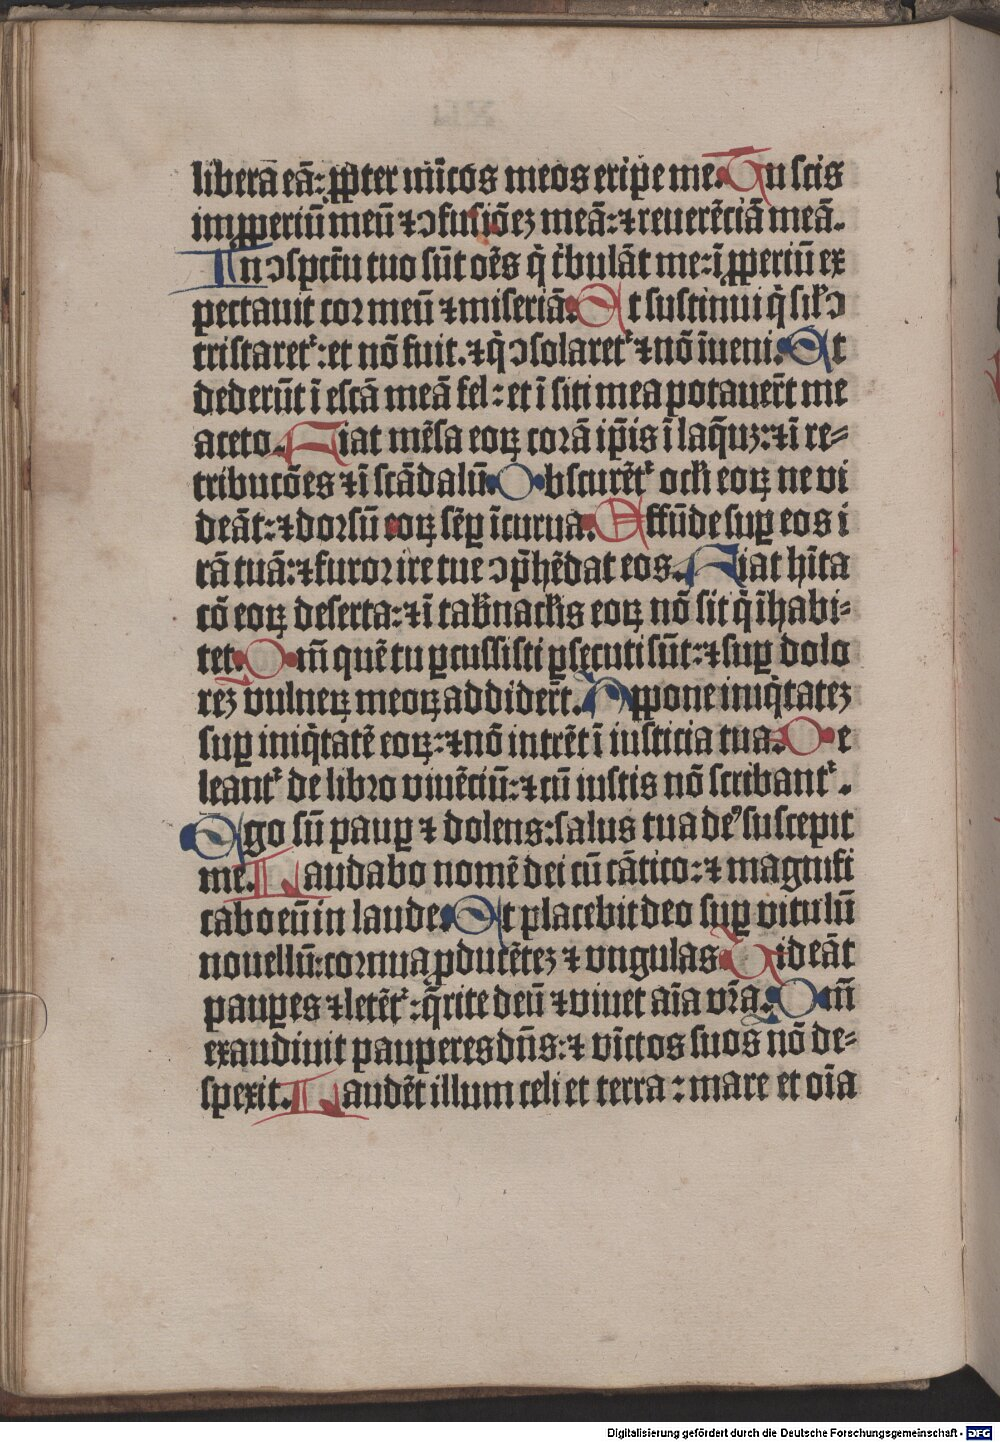 liberā eā: ꝓpter inīcos meos eripe me. Tu scis
imꝓperiū meū ⁊ ↄfusiōeʒ meā: ⁊ reuerēciā meā.
In ↄspc̄tu tuo sūt oēs q̄ tͥbulāt me: īꝓperiū ex
pectauit cor meū ⁊ miseriā. Et sustinui q̄ sil̛ ↄ
tristaretᷣ: et nō fuit. ⁊ q̄ ↄsolaretᷣ ⁊ nō īueni. Et
dederūt ī escā meā fel: et ī siti mea potauer̄t me
aceto. Fiat mēsa eoꝝ corā ip̄is ī laq̄uʒ: ⁊ ī re⸗
tribucōes ⁊ ī scādalū. Obscurētᷣ ocl̛i eoꝝ ne vi
deāt: ⁊ dorsū eoꝝ sēꝑ īcurua. Effūde suꝑ eos i
rā tuā: ⁊ furor ire tue ↄp̄hēdat eos. Fiat hīta
cō eoꝝ deserta: ⁊ ī tab̛nacl̛is eoꝝ nō sit q̄ īhabi⸗
tet. Qm̄ quē tu ꝑcussisti ꝑsecuti sūt: ⁊ suꝑ dolo
reʒ vulneꝝ meoꝝ addider̄t. Appone iniq̄tateʒ
suꝑ iniq̄tatē eoꝝ: ⁊ nō intrēt ī iusticia tua. De
leantᷣ de libro viuēciū: ⁊ cū iustis nō scribantᷣ.
Ego sū pauꝑ ⁊ dolens: salus tua deꝰ suscepit
me. Laudabo nomē dei cū cātico: ⁊ magnifi
cabo eū in laude. Et placebit deo suꝑ vitulū
nouellū: cornua ꝓducēteʒ ⁊ vngulas. Videāt
pauꝑes ⁊ letētᷣ: q̄rite deū ⁊ viuet aīa vr̄a. Qm̄
exaudiuit pauperes dn̄s: ⁊ vīctos suos nō de⸗
spexit. Laudēt illum celi et terra: mare et oīa
Digitalisierung gefördert durch die Deutsche Forschungsgemeinschaft - DFG